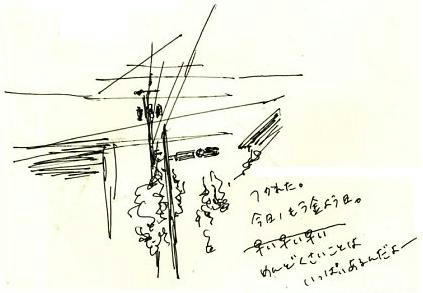 つかれた。
今日、もう金よう日。
早い早い早い
めんどくさいことは
いっぱいあるんだよー